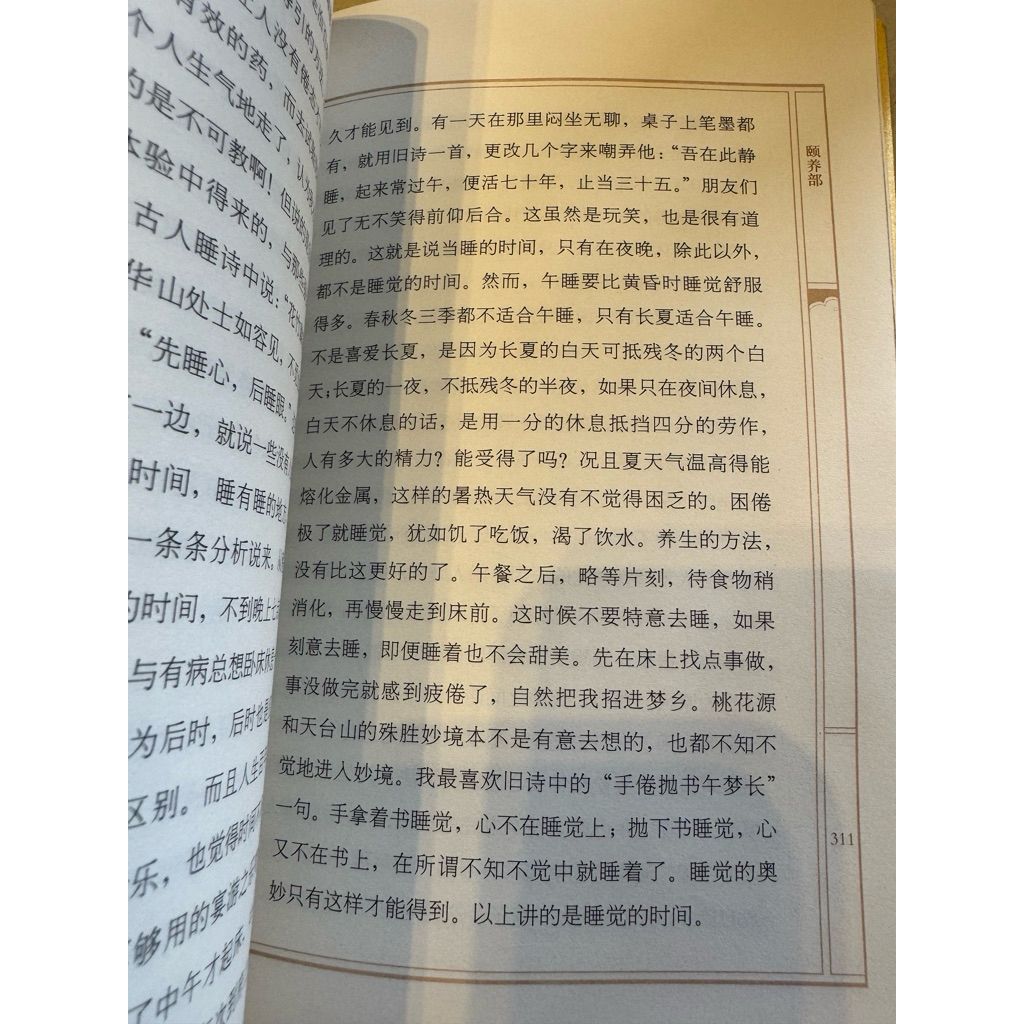 有效的药，而去
个人生气地走了，认为
的是不可教啊！但说的
验中得来的，与那
古人睡诗中说：“花竹
华山处士如容见，不
“先睡心，后睡眼。”
一边，就说一些没有
时间，睡有睡的地方
一条条分析说来。
的时间，不到晚上
与有病总想卧床休
为后时，后时也是
区别。而且人生百
乐，也觉得时间不
够用的宴游之
了中午才起床
久才能见到。有一天在那里闷坐无聊，桌子上笔墨都
有，就用旧诗一首，更改几个字来嘲弄他：“吾在此静
睡，起来常过午，便活七十年，止当三十五。”朋友们
见了无不笑得前仰后合。这虽然是玩笑，也是很有道
理的。这就是说当睡的时间，只有在夜晚，除此以外，
都不是睡觉的时间。然而，午睡要比黄昏时睡觉舒服
得多。春秋冬三季都不适合午睡，只有长夏适合午睡。
不是喜爱长夏，是因为长夏的白天可抵残冬的两个白
天；长夏的一夜，不抵残冬的半夜，如果只在夜间休息，
白天不休息的话，是用一分的休息抵挡四分的劳作，
人有多大的精力？能受得了吗？况且夏天气温高得能
熔化金属，这样的暑热天气没有不觉得困乏的。困倦
极了就睡觉，犹如饥了吃饭，渴了饮水。养生的方法，
没有比这更好的了。午餐之后，略等片刻，待食物稍
消化，再慢慢走到床前。这时候不要特意去睡，如果
刻意去睡，即便睡着也不会甜美。先在床上找点事做，
事没做完就感到疲倦了，自然把我招进梦乡。桃花源
和天台山的殊胜妙境本不是有意去想的，也都不知不
觉地进入妙境。我最喜欢旧诗中的“手倦抛书午梦长”
一句。手拿着书睡觉，心不在睡觉上；抛下书睡觉，心
又不在书上，在所谓不知不觉中就睡着了。睡觉的奥
妙只有这样才能得到。以上讲的是睡觉的时间。
颐养部
311